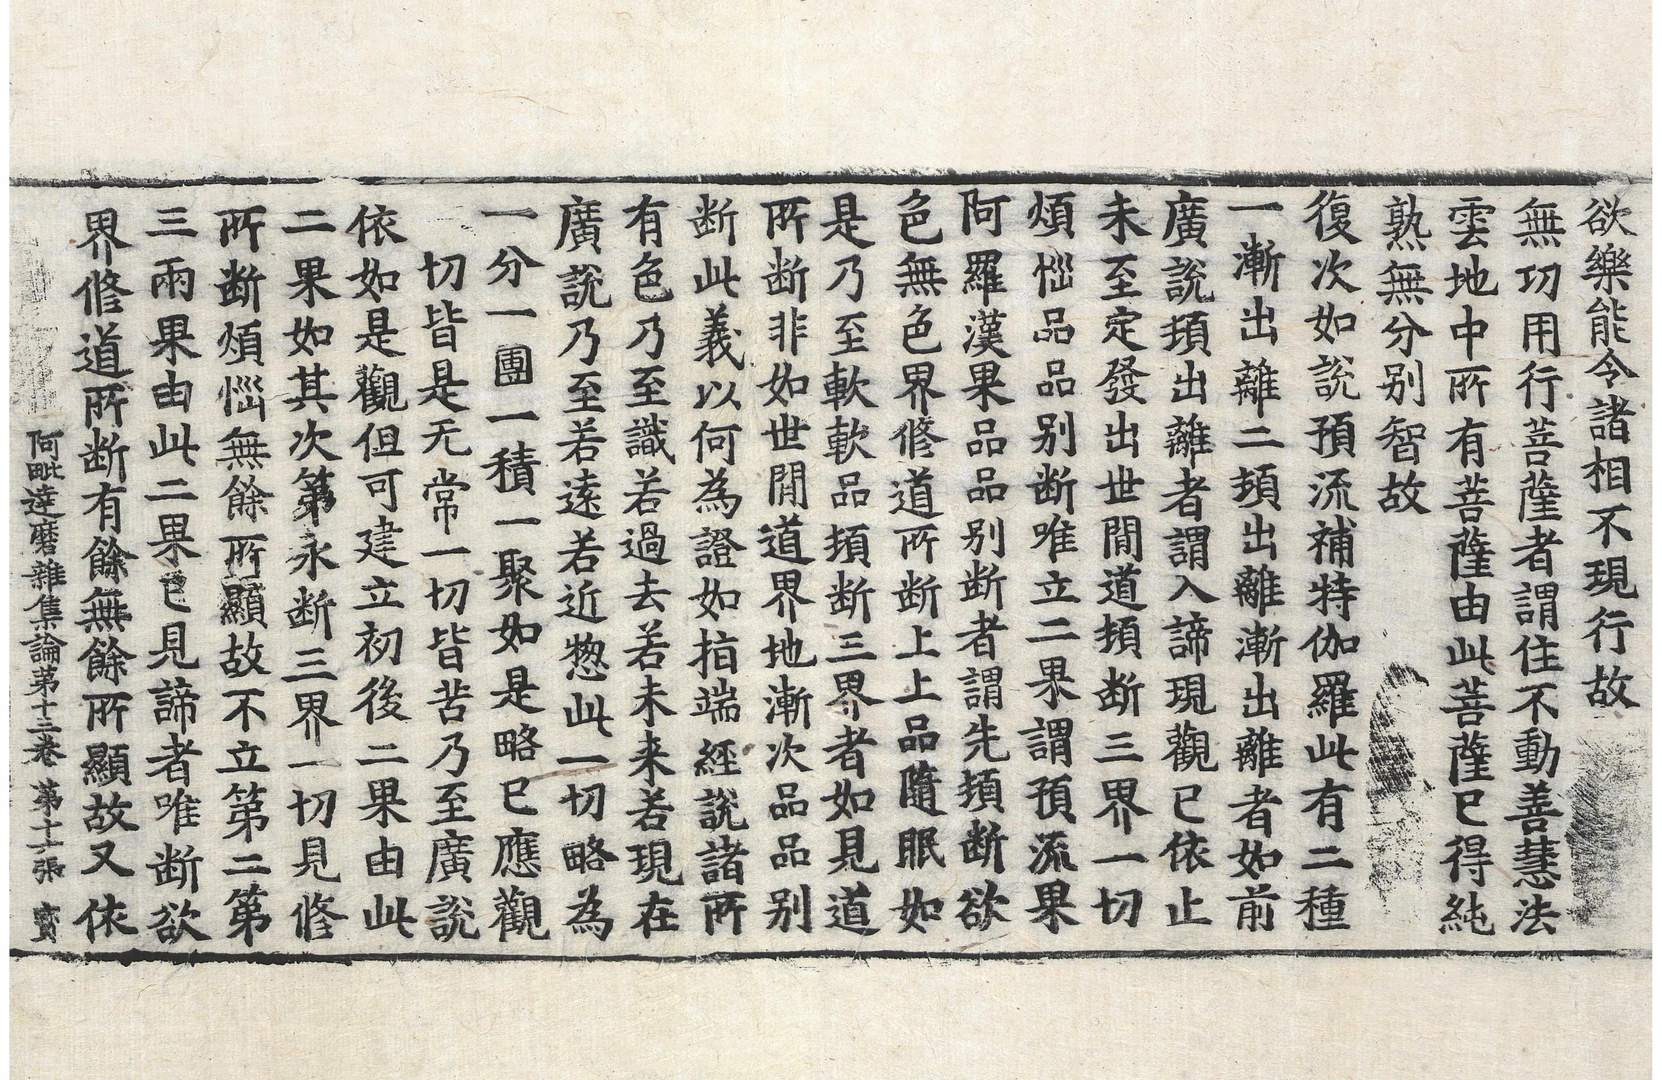 欲樂能令諸相不現行故
無功用行菩薩者謂住不動善慧法
雲地中所有菩薩由此菩薩已得純
熟無分別智故
復次如說預流補特伽羅此有二種
一漸出離二頓出離漸出離者如前
廣說頓出離者謂入諦現觀已依止
未至定發出世間道頓斷三界一切
煩惱品品別斷唯立二果謂預流果
阿羅漢果品品別斷者謂先頓斷欲
色無色界修道所斷上上品隨眠如
是乃至軟軟品頓斷三界者如見道
所斷非如世間道界地漸次品品別
斷此義以何為證如指端經說諸所
有色乃至識若過去若未来若現在
廣說乃至若遠若近揔此一切略為
一分一團一積一聚如是略已應觀
切皆是无常一切皆苦乃至廣說
依如是觀但可建立初後二果由此
二果如其次第永斷三界一切見修
所斷煩惱無餘所顯故不立第二第
三兩果由此二果已見諦者唯斷欲
界修道所斷有餘無餘所顯故又依
阿毗達磨雜集論第十三卷 第十六張 寶